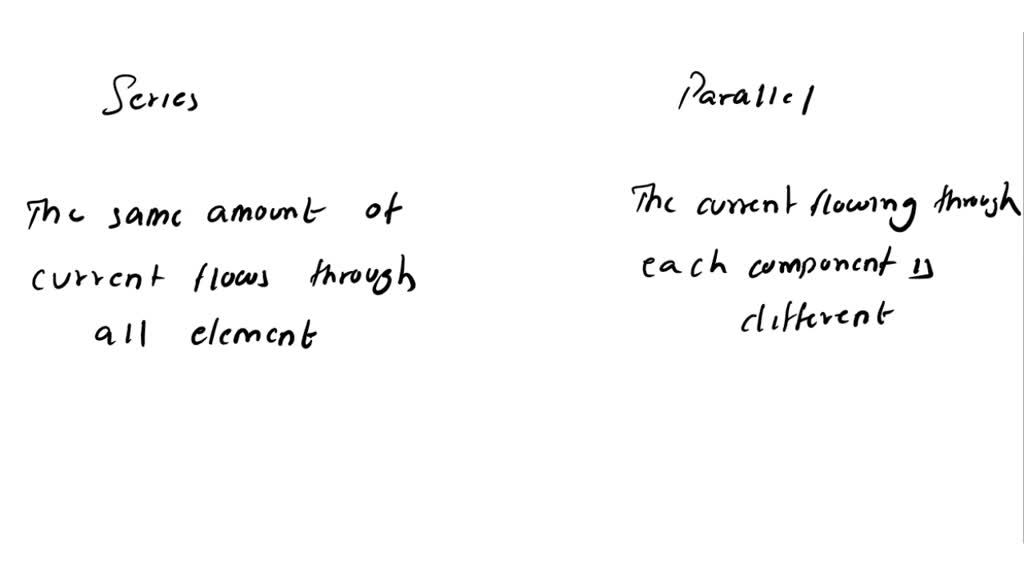 Series
The same amount of
current flows through
all element
Parallel
The current flowing through
each component is
different